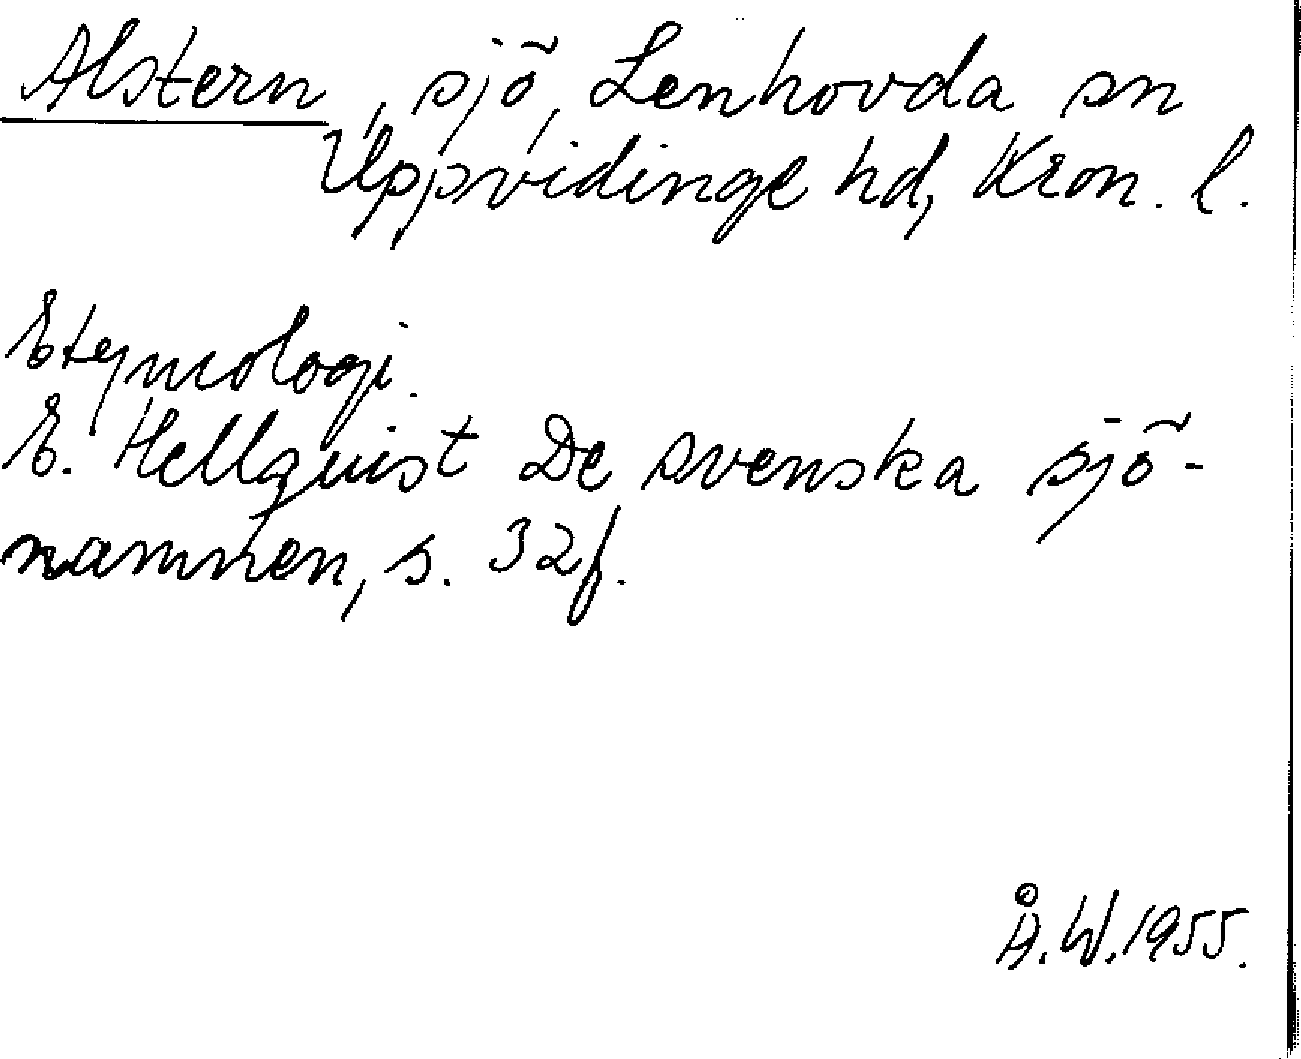 Alstern, sjö, Lenhovda sn
Uppvidinge hd, Kron. l.
Etymologi.
E. Hellquist De svenska sjö-
namnen, s. 32f.
Å.W.1955.